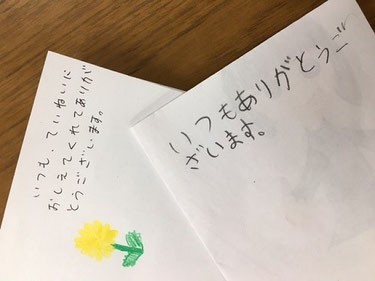 いつも、ていねいに
おしえてくれてありが
とうございます。
いつもありがとうご
ざいます。